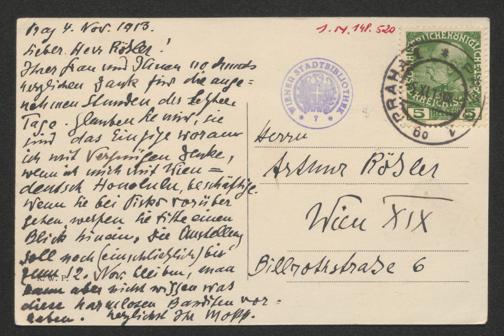 Prag 4. Nov. 1913.
Lieber Herr Roeßler!
Ihrer Frau und Ihnen nochmals
herzlichen Dank für die ange-
nehmen Stunden der letzten
Tage. Glauben Sie mir, sie
sind das Einzige woran
ich mit Vergnügen denke,
wenn ich mich mit Wien =
deutsch Honolulu, beschäftige.
Wenn Sie bei Pisko vorüber
gehen werfen Sie bitte einen
Blick hinein. Die Ausstellung
soll noch (einschließlich) bis
12. Nov. bleiben, man
kann aber nicht wissen was
diese harmlosen Banditen vor-
haben. Herzlichst Ihr Mopp.
1. N. 148. 520
WIENER STADTBIBLIOTHEK
7
PRAHA
5
5
Herrn
Arthur Rößler
Wien XIX
Billrothstraße 6